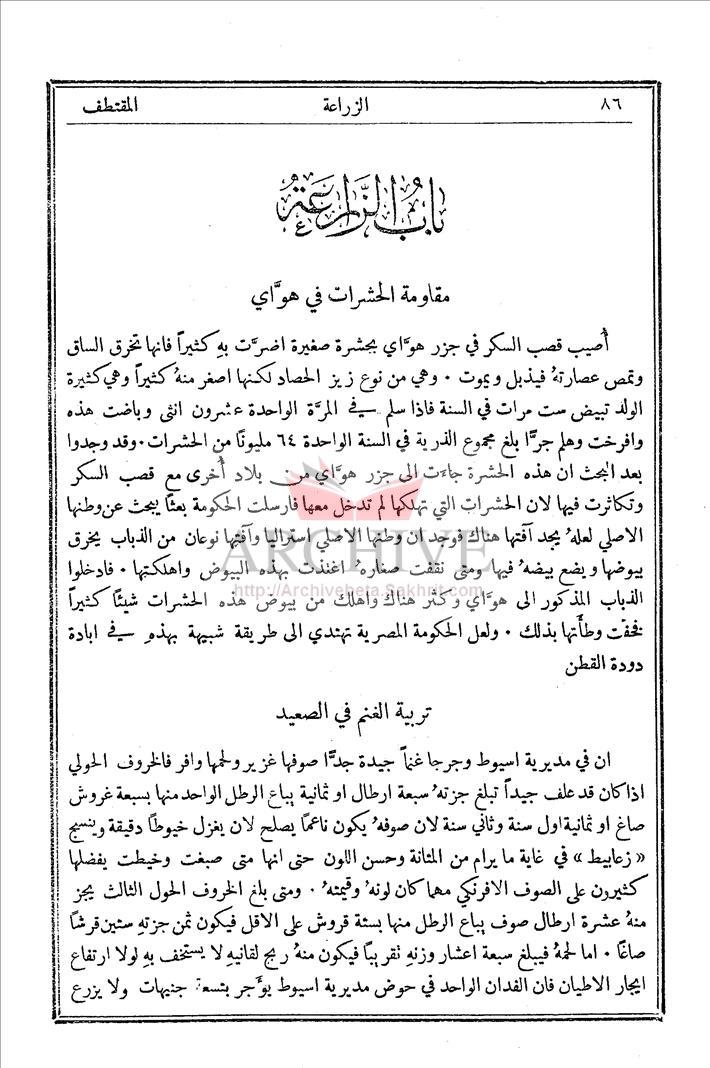 ٨٦ الزراعة المقتطف
باب الزراعة
مقاومة الحشرات في هوَّاي
أُصيب قصب السكر في جزر هوَّاي بحشرة صغيرة اضرَّت بهِ كثيراً فانها تخرق الساق
وتمص عصارتهُ فيذبل ويموت ٠ وهي من نوع زيز الحصاد لكنها اصغر منهُ كثيراً وهي كثيرة
الولد تبيض ست مرات في السنة فاذا سلم في المرَّة الواحدة عشرون انثى وباضت هذه
وافرخت وهلم جرًّا بلغ مجموع الذرية في السنة الواحدة ٦٤ مليونًا من الحشرات ٠ وقد وجدوا
بعد البحث ان هذه الحشرة جاءَت الى جزر هوَّاي من بلاد أُخرى مع قصب السكر
وتكاثرت فيها لان الحشرات التي تهلكها لم تدخل معها فارسلت الحكومة بعثًا يبحث عن وطنها
الاصلي لعلهُ يجد آفتها هناك فوجد ان وطنها الاصلي استراليا وآفتها نوعان من الذباب يخرق
بيوضها ويضع بيضهُ فيها ومتى نقفت صغارهُ اغتذت بهذه البيوض واهلكتها ٠ فادخلوا
ARCHIVE
http://Archivebeta.Sakhrit.com
الذباب المذكور الى هوَّاي وكثر هناك واهلك من بيوض هذه الحشرات شيئًا كثيراً
فخفَّت وطأَتها بذلك ٠ ولعل الحكومة المصرية تهتدي الى طريقة شبيهة بهذه في ابادة
دودة القطن
تربية الغنم في الصعيد
ان في مديرية اسيوط وجرجا غنماً جيدة جدًّا صوفها غزير ولحمها وافر فالخروف الحولي
اذا كان قد علف جيداً تبلغ جزتهُ سبعة ارطال او ثمانية يباع الرطل الواحد منها بسبعة غروش
صاغ او ثمانية اول سنة وثاني سنة لان صوفهُ يكون ناعمًا يصلح لان يغزل خيوطًا دقيقة وينسج
« زعابيط » في غاية ما يرام من المتانة وحسن اللون حتى انها متى صبغت وخيطت يفضلها
كثيرون على الصوف الافرنكي مهما كان لونهُ وقيمتهُ ٠ ومتى بلغ الخروف الحول الثالث يجز
منهُ عشرة ارطال صوف يباع الرطل منها بستة قروش على الاقل فيكون ثمن جزتهِ ستين قرشًا
صاغًا ٠ اما لحمهُ فيبلغ سبعة اعشار وزنهِ نقريبًا فيكون منهُ ربح لقانيهِ لا يستخف بهِ لولا ارتفاع
ايجار الاطيان فان الفدان الواحد في حوض مديرية اسيوط يوَّجر بتسعة جنيهات ولا يزرع